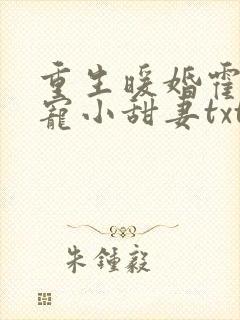 重生暖婚霍
寵小甜妻txt
朱鍾毅